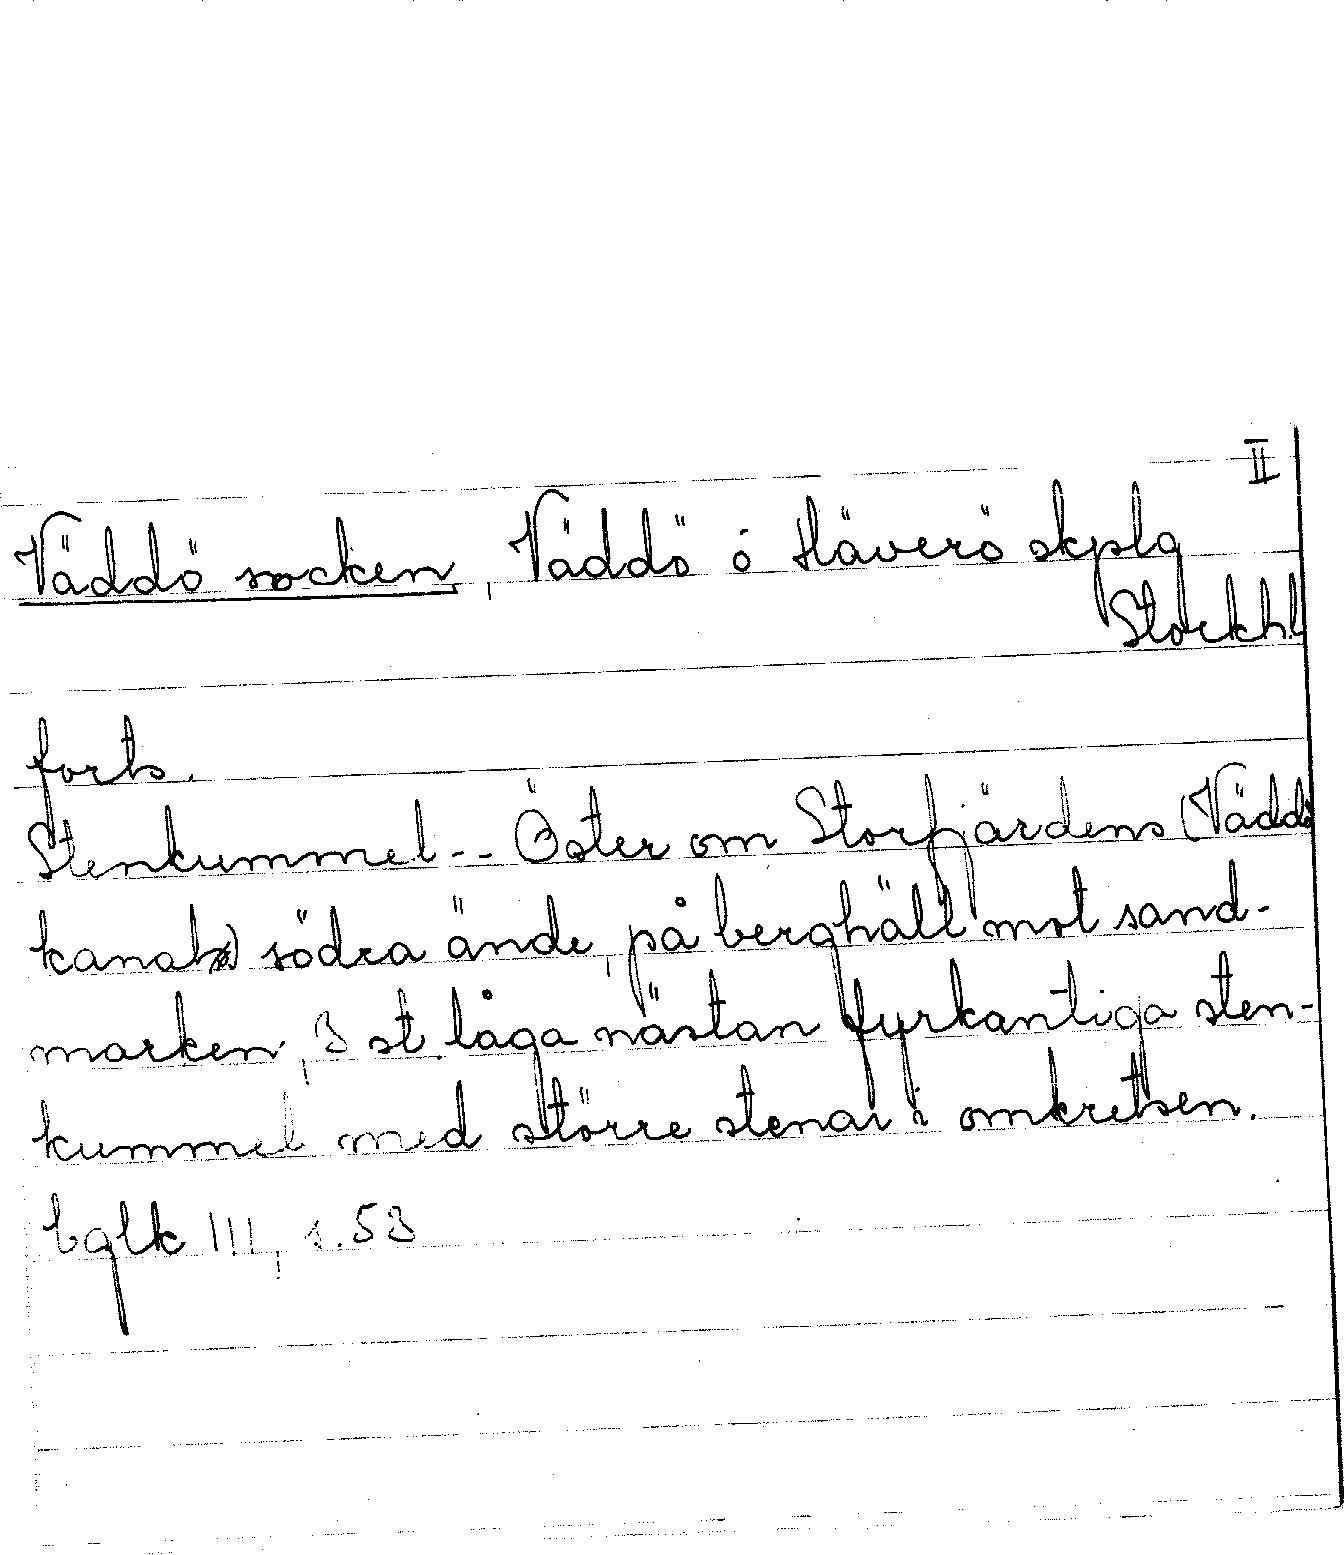 II
Väddö socken, Väddö o Häverö skplg
Stockh.l
forts.
Stenkummel-- Öster om Storfjärdens (Väddö
kanals) södra ände, på berghäll mot sand-
marken, 3 st. låga nästan fyrkantiga sten-
kummel med större stenar i omkretsen.
bglk III, s.53